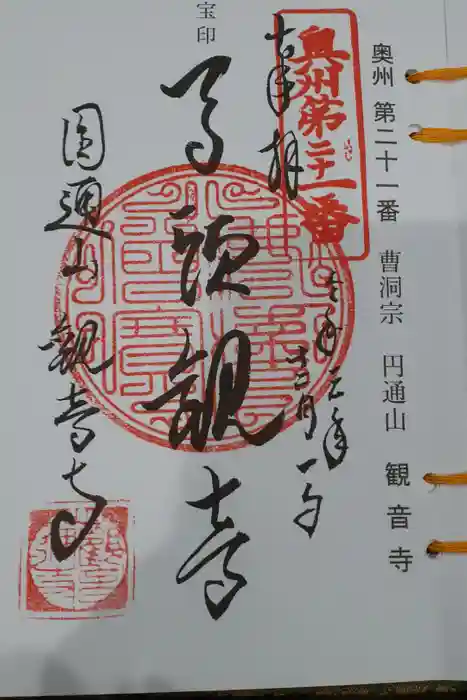 奥州 第二十一番 曹洞宗 円通山 観音寺
奥州第二十一番
奉拝
令和元年
十二月一日
宝印
馬頭観音
圓通山
観音寺